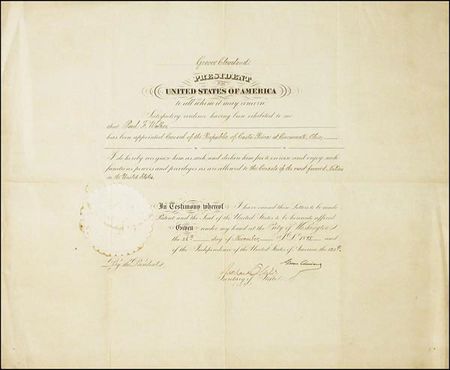 Grover Cleveland
PRESIDENT
OF THE
UNITED STATES OF AMERICA
to all whom it may concern
Satisfactory evidence having been exhibited to me
that Paul F. Walker
has been appointed Consul of the Republic of Costa Rica at Cincinnati, Ohio
I do hereby recognize him as such, and declare him free to exercise and enjoy such
functions powers and privileges as are allowed to the Consuls of the most favored Nations
in the United States.
In Testimony whereof I have caused these Letters to be made
Patent and the Seal of the United States to be hereunto affixed
Given under my hand at the City of Washington
the day of November A.D. 1895 and
of the Independence of the United States of America, the 120th.
By the President
Grover Cleveland
Richard Olney
Secretary of State